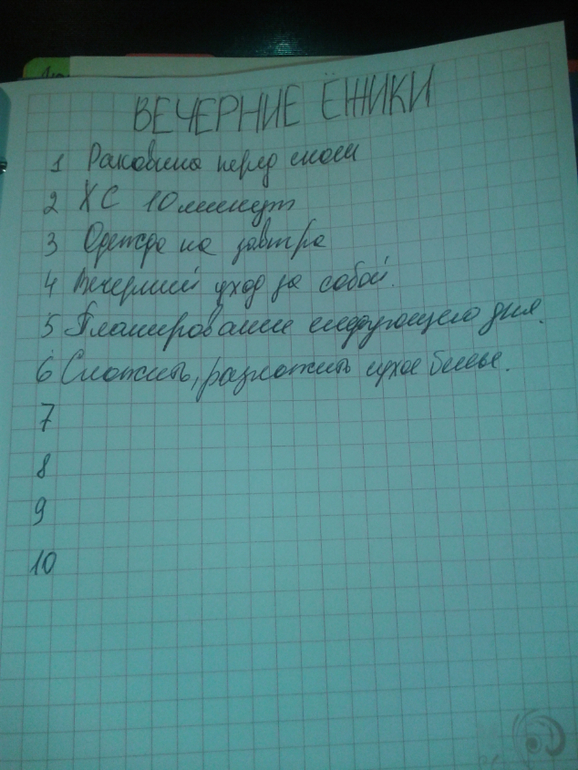 ВЕЧЕРНИЕ ЁЖИКИ
1 Раковина перед сном
2 ХС 10 минут
3 Одежда на завтра
4 Вечерний уход за собой.
5 Планирование следующего дня.
6 Сложить, разложить сухое белье.
7
8
9
10